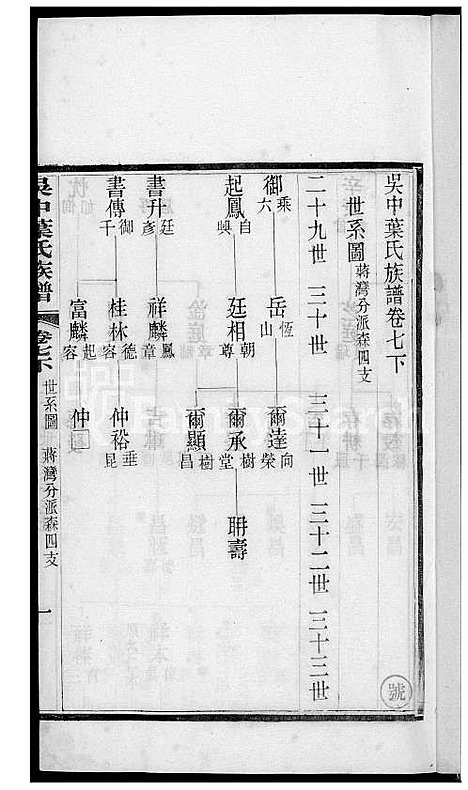 吳中葉氏族譜卷七下
世系圖 蔣灣分派森四支
二十九世 三十世 三十一世 三十二世 三十三世
御 乘六 岳 恆山 爾達 向榮
起鳳 自興 廷相 朝尊 爾承 樹堂 耼壽
爾顯 樹昌
書升 廷彥 祥麟 鳳章
書傳 御千 桂林 德容 仲裕 垂昆
富麟 起容 仲
吳中葉氏族譜 卷七下 世系圖 蔣灣分派森四支 一
號